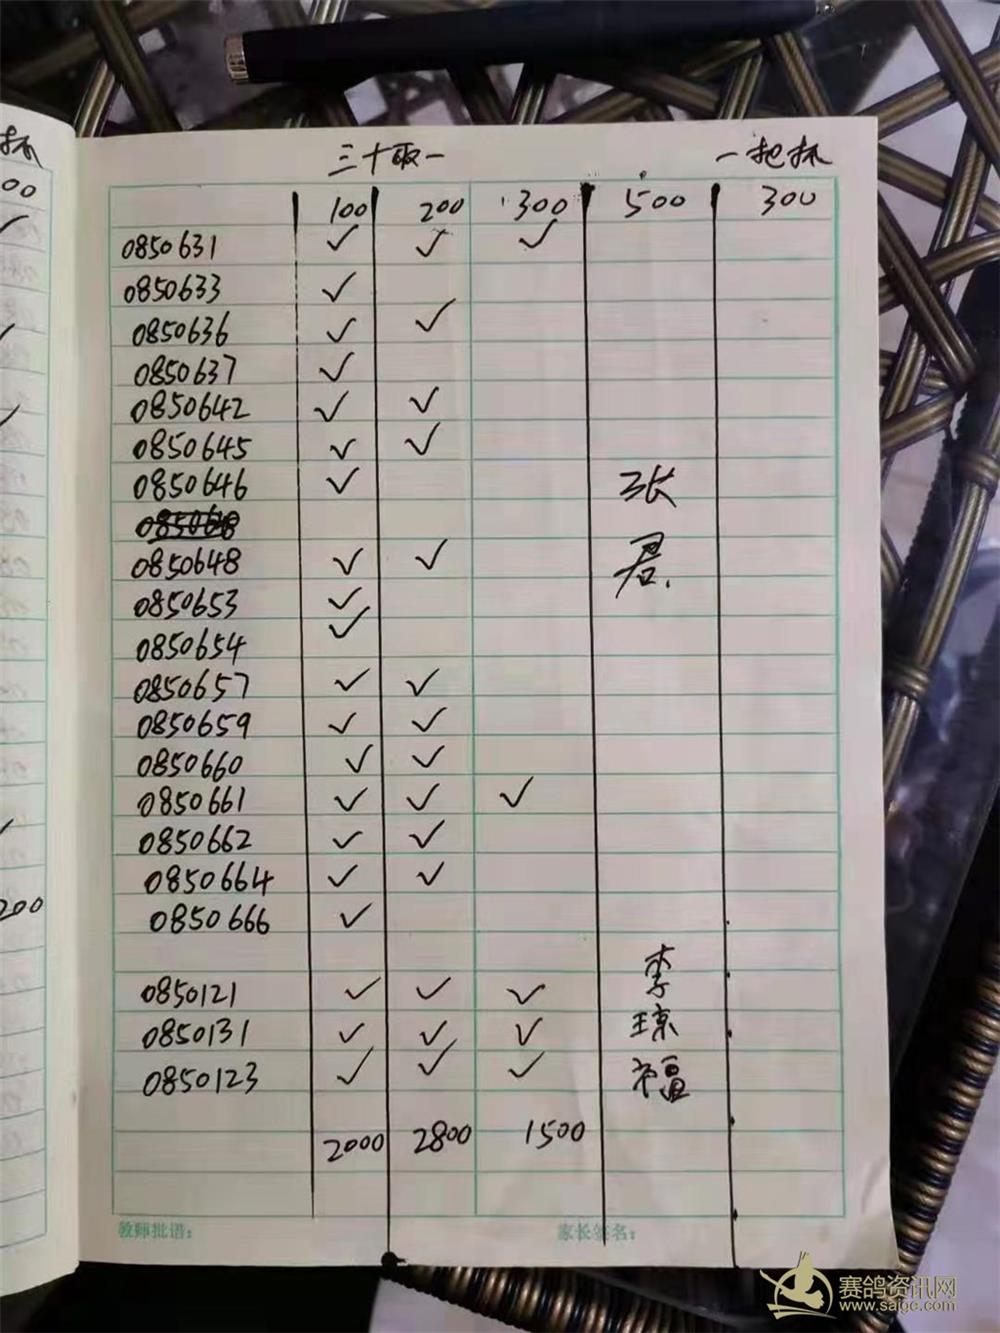 抓
00
三十取一 一把抓
100 200 300 500 300
0850631 ✓ ✓ ✓
0850633 ✓
0850636 ✓ ✓
0850637 ✓
0850642 ✓ ✓
0850645 ✓ ✓
0850646 ✓ 张
0850648 ✓ ✓ 君
0850653 ✓
0850654 ✓
0850657 ✓ ✓
0850659 ✓ ✓
0850660 ✓ ✓
0850661 ✓ ✓ ✓
0850662 ✓ ✓
0850664 ✓ ✓
0850666 ✓
200
李
0850121 ✓ ✓ ✓
0850131 ✓ ✓ ✓ 琼
0850123 ✓ ✓ ✓ 福
2000 2800 1500
教师批语: 家长签名:
赛鸽资讯网
www.saige.com